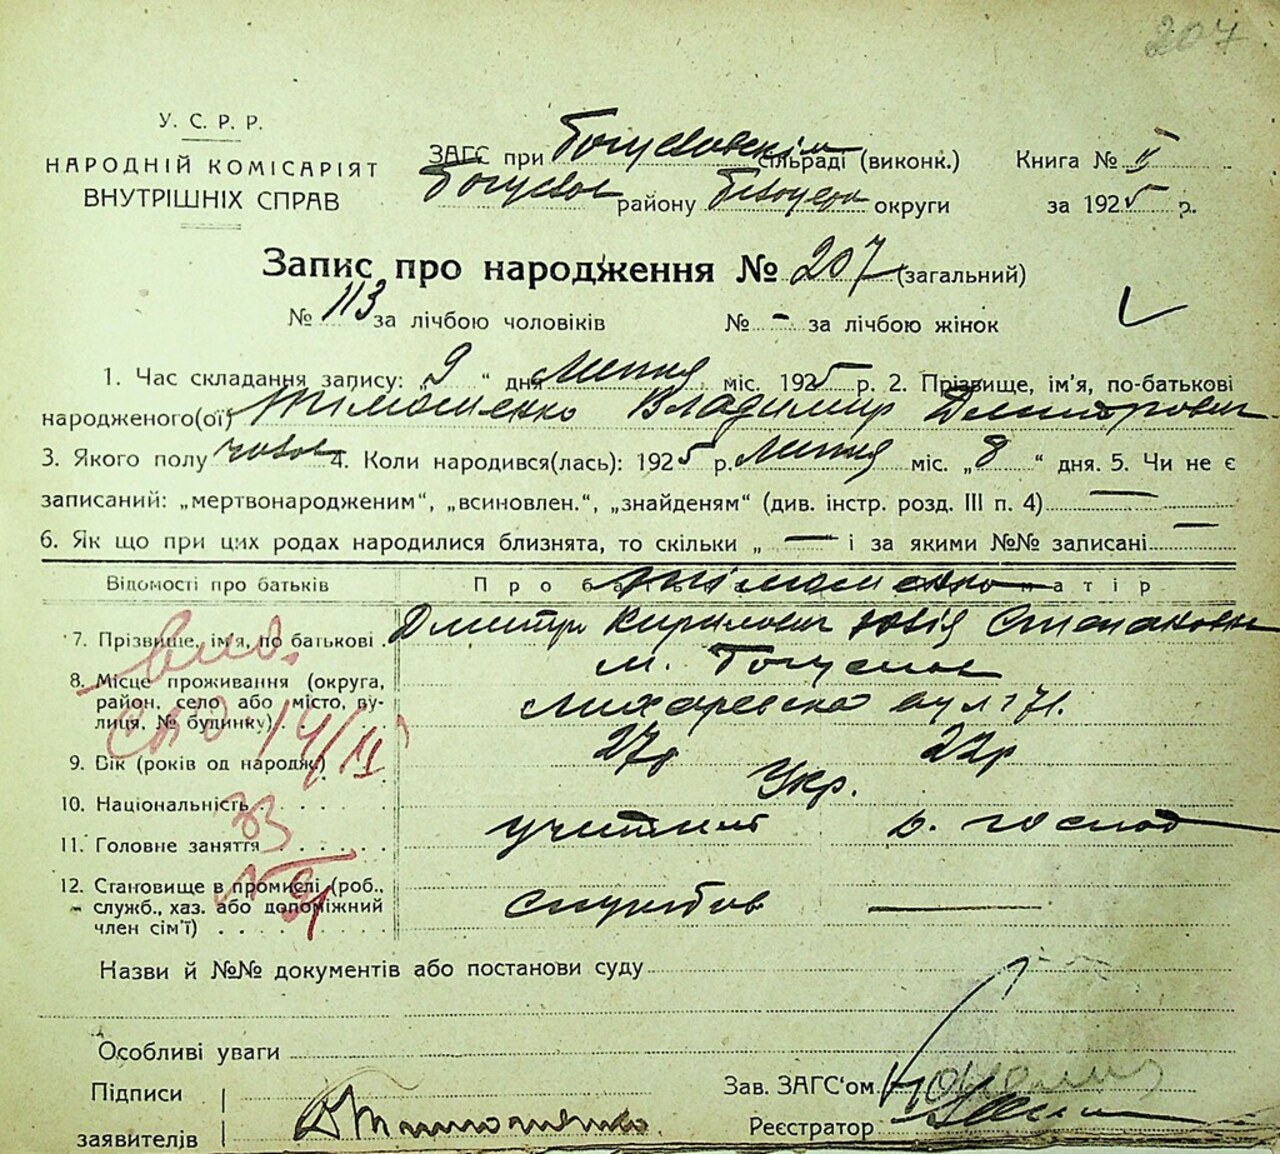 207
У. С. Р. Р.
НАРОДНІЙ КОМІСАРІЯТ
ВНУТРІШНІХ СПРАВ
ЗАГС при Богуславскім сільраді (виконк.) Книга № II
Богуслав району Білоцерк округи за 1925 р.
Запис про народження № 207 (загальний)
№ 113 за лічбою чоловіків № - за лічбою жінок
1. Час складання запису: „ 9 “ дня Липня міс. 1925 р. 2. Прізвище, ім'я, по-батькові
народженого(ої) Тімошенко Владимир Дмитрович
3. Якого полу чолов 4. Коли народився(лась): 1925 р. Липня міс. „ 8 “ дня. 5. Чи не є
записаний: „мертвонародженим“, „всиновлен.“, „знайденям“ (див. інстр. розд. III п. 4) —
6. Як що при цих родах народилися близнята, то скільки „ — і за якими №№ записані —
Відомості про батьків Про батька Тімошенко матір
7. Прізвище, ім'я, по батькові Дмитро Кирилович Юлія Степановна
8. Місце проживання (округа, район, село або місто, вулиця, № будинку) м. Богуслав
вул 171.
9. Вік (років од народж.) 27р 22р
10. Національність Укр.
11. Головне заняття учитель д. господ
12. Становище в промислі (роб., служб., хаз. або допоміжний член сім'ї) службов —
Назви й №№ документів або постанови суду
Особливі уваги
Підписи Зав. ЗАГС'ом
заявителів ДТимошенко Реєстратор